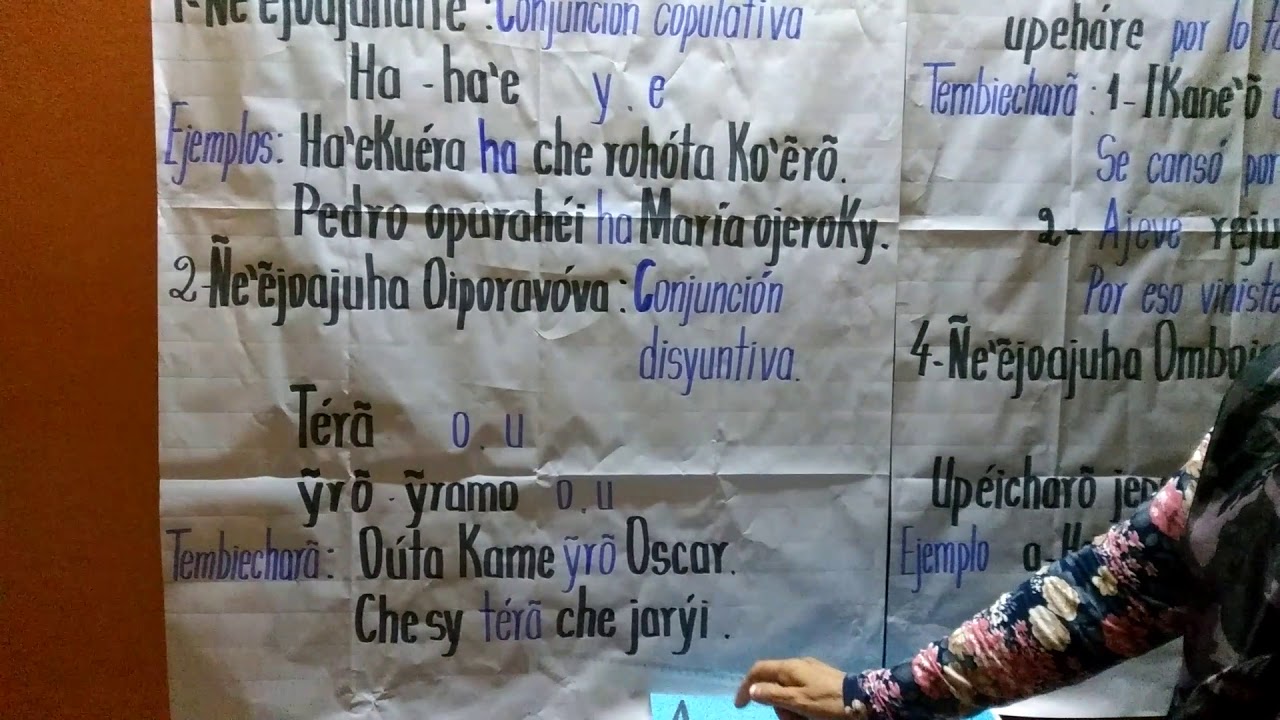 1-Ñe'ẽjoajuharíre : Conjunción copulativa
Ha - ha'e y . e
Ejemplos: Ha'eKuéra ha che rohóta Ko'ẽrõ.
Pedro opurahéi ha María ojeroKy.
2-Ñe'ẽjoajuha Oiporavóva : Conjunción
disyuntiva.
Térã o . u
ỹrõ - ỹramo o . u
Tembiecharã: Oúta Kame ỹrõ Oscar.
Che sy térã che jarýi .
upeháre por lo
Tembiecharã : 1- Kane'õ
Se cansó por
2- Ajeve
Por eso viniste
4-Ñe'ẽjoajuha
Upéicharõ
Ejemplo a-
A